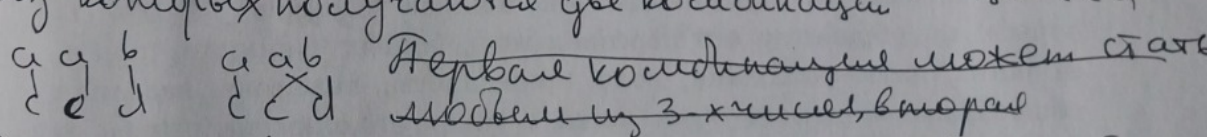 у которых получаются две комбинации
a a b   a a b   Первая комбинация может стать
c c d   c c d   любым из 3-х чисел, вторая